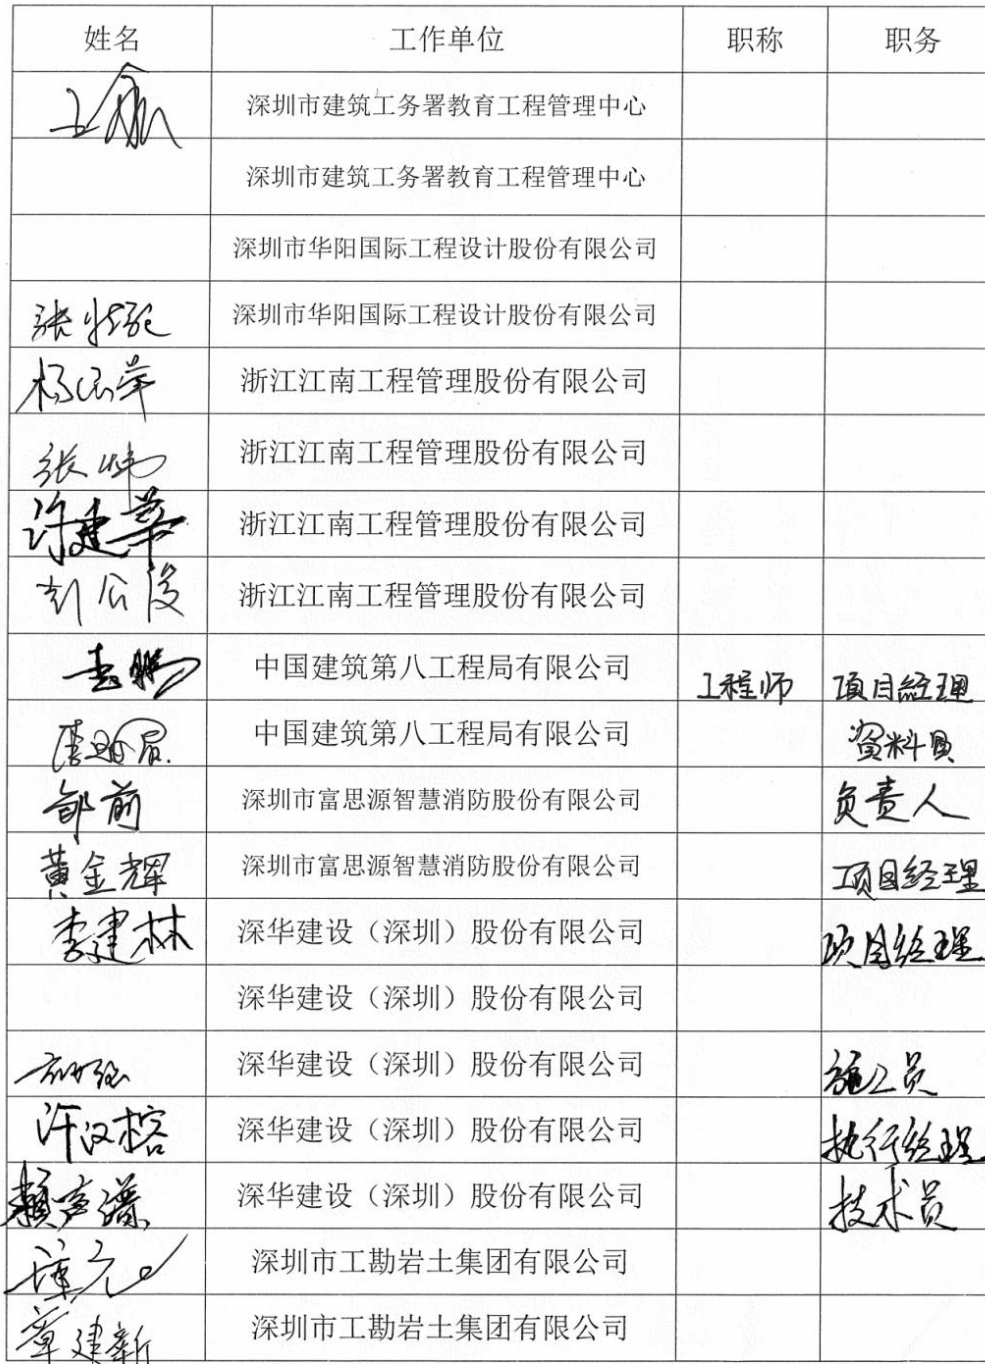 姓名 工作单位 职称 职务
深圳市建筑工务署教育工程管理中心
深圳市建筑工务署教育工程管理中心
深圳市华阳国际工程设计股份有限公司
张 深圳市华阳国际工程设计股份有限公司
杨 浙江江南工程管理股份有限公司
张 浙江江南工程管理股份有限公司
许建华 浙江江南工程管理股份有限公司
彭公 浙江江南工程管理股份有限公司
中国建筑第八工程局有限公司 工程师 项目经理
中国建筑第八工程局有限公司 资料员
邹前 深圳市富思源智慧消防股份有限公司 负责人
黄金辉 深圳市富思源智慧消防股份有限公司 项目经理
李建林 深华建设（深圳）股份有限公司 项目经理
深华建设（深圳）股份有限公司
深华建设（深圳）股份有限公司 施工员
许汉榕 深华建设（深圳）股份有限公司 执行经理
赖声 深华建设（深圳）股份有限公司 技术员
深圳市工勘岩土集团有限公司
章建新 深圳市工勘岩土集团有限公司